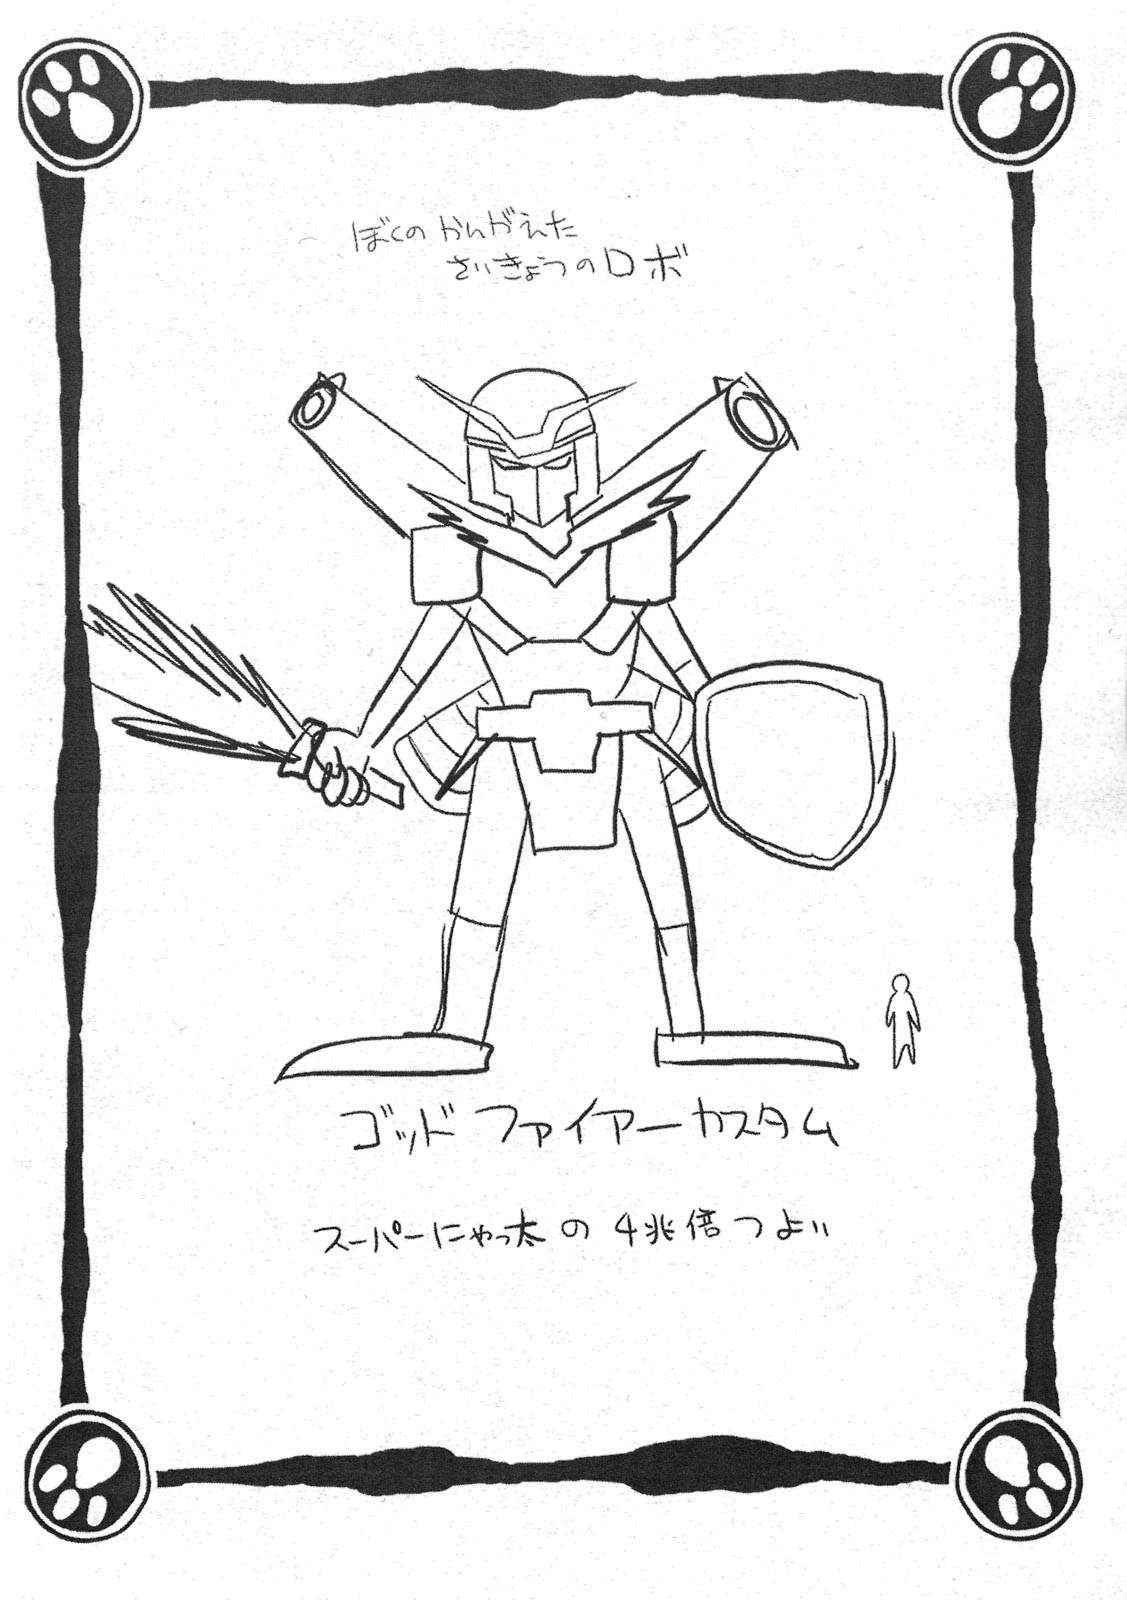 ぼくのかんがえた
さいきょうのロボ
ゴッドファイアーカスタム
スーパーにゃっ太の4兆倍つよい